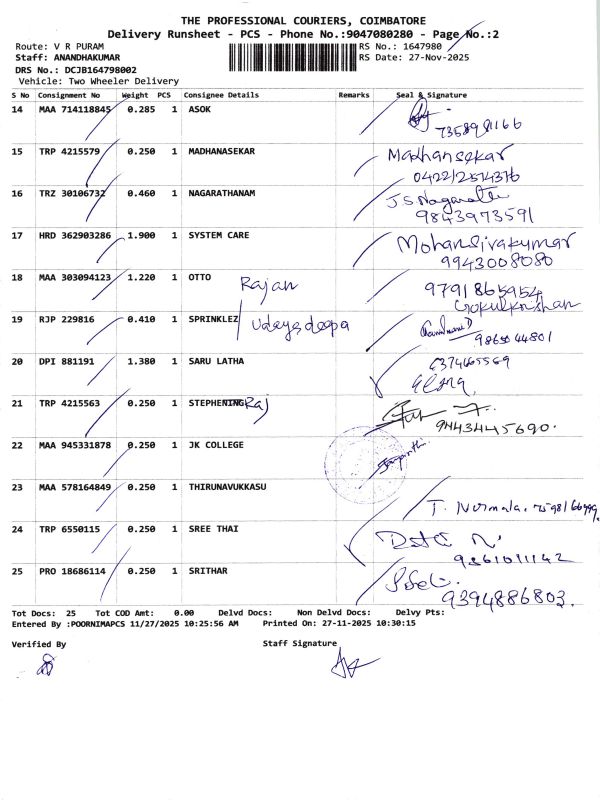 THE PROFESSIONAL COURIERS, COIMBATORE
Delivery Runsheet - PCS - Phone No.:9047080280 - Page No.:2
Route: V R PURAM
RS No.: 1647980
Staff: ANANDHAKUMAR
RS Date: 27-Nov-2025
DRS No.: DCJB164798002
Vehicle: Two Wheeler Delivery
S No Consignment No Weight PCS Consignee Details Remarks Seal & Signature
14 MAA 714118845 0.285 1 ASOK
7358981166
15 TRP 4215579 0.250 1 MADHANASEKAR Madhansekar
0422/2574376
16 TRZ 30106732 0.460 1 NAGARATHANAM J.S. Nagarathn
9843973591
17 HRD 362903286 1.900 1 SYSTEM CARE Mohansivakumar
9943008080
18 MAA 303094123 1.220 1 OTTO Rajan 9791865954
Gokulkrishan
19 RJP 229816 0.410 1 SPRINKLEZ Udayadeepa
9865044801
20 DPI 881191 1.380 1 SARU LATHA 6374465569
21 TRP 4215563 0.250 1 STEPHENING Raj
9443445690.
22 MAA 945331878 0.250 1 JK COLLEGE
23 MAA 578164849 0.250 1 THIRUNAVUKKASU T. Normala.
24 TRP 6550115 0.250 1 SREE THAI
9361011142
25 PRO 18686114 0.250 1 SRITHAR
9394886803.
Tot Docs: 25 Tot COD Amt: 0.00 Delvd Docs: Non Delvd Docs: Delvy Pts:
Entered By :POORNIMAPCS 11/27/2025 10:25:56 AM Printed On: 27-11-2025 10:30:15
Verified By Staff Signature